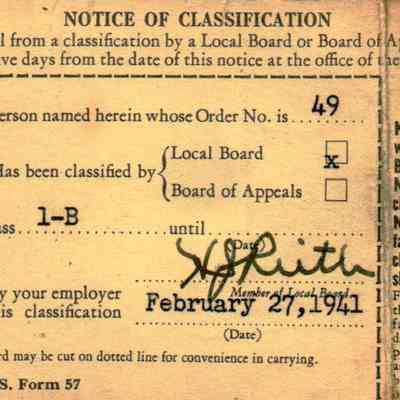 NOTICE OF CLASSIFICATION
from a classification by a Local Board or Board of
days from the date of this notice at the office of the
erson named herein whose Order No. is 49
Has been classified by { Local Board x
Board of Appeals
1-B until
(Date)
Member of Local Board
y your employer
is classification February 27,1941
(Date)
rd may be cut on dotted line for convenience in carrying.
S. Form 57